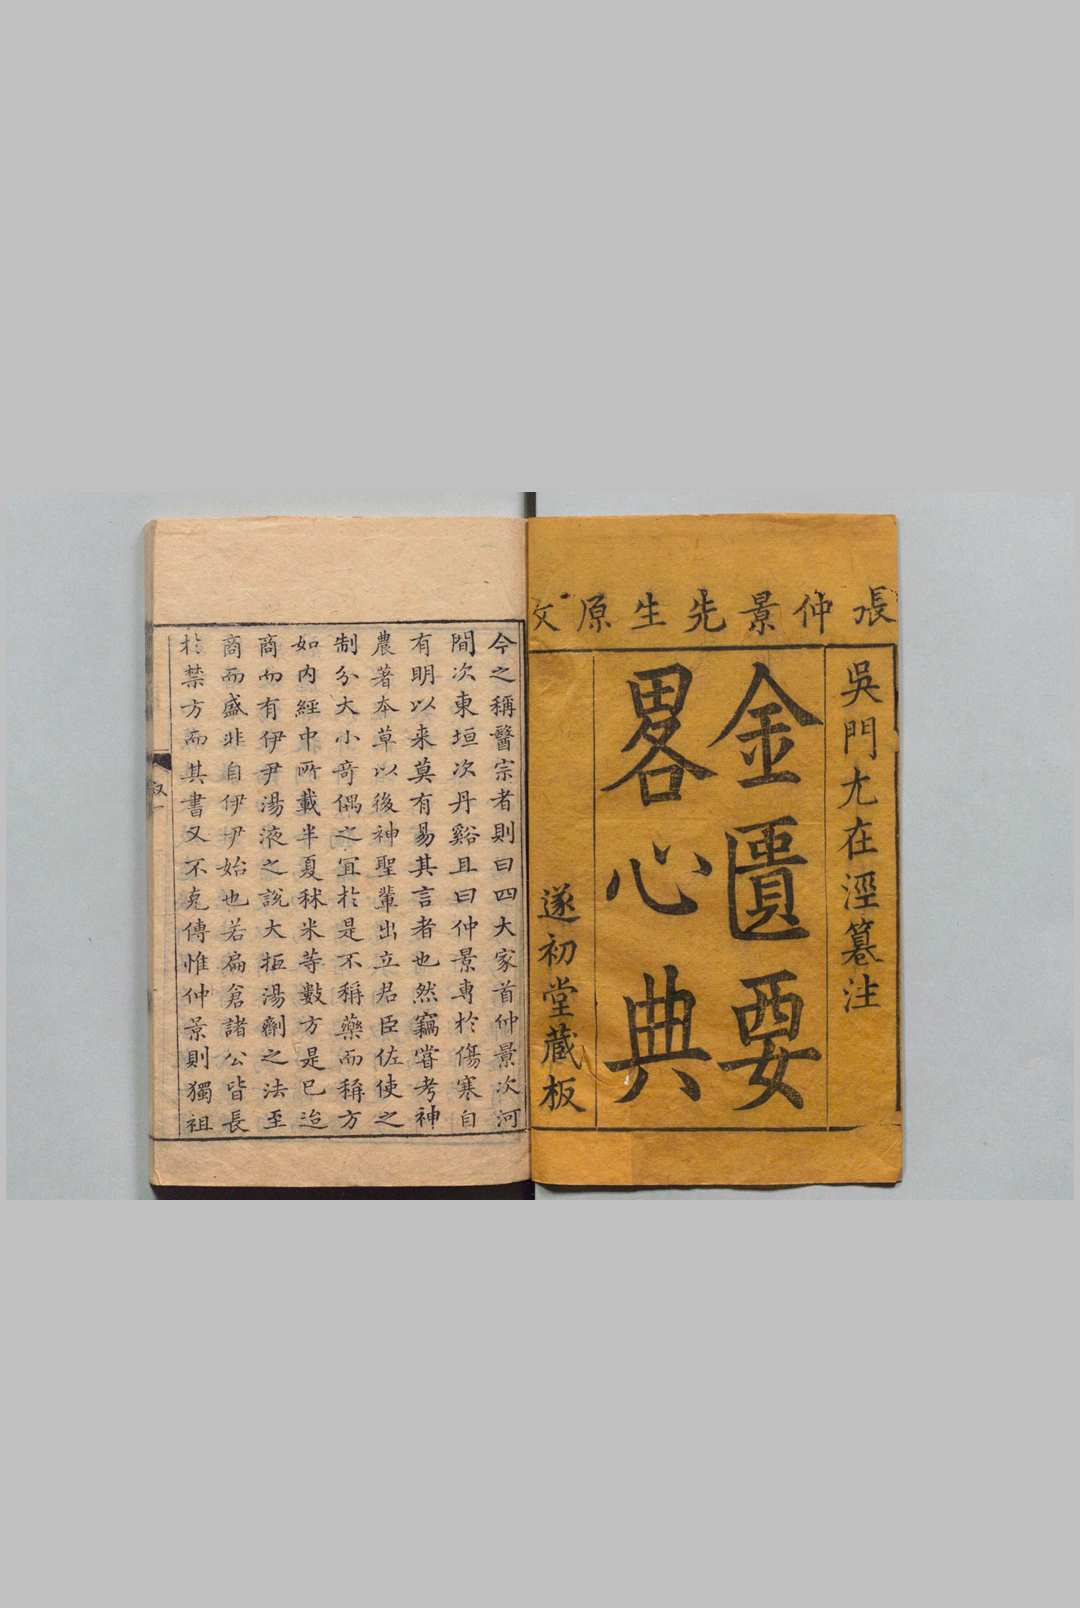 張仲景先生原文
吳門尤在涇纂注
金匱要
畧心典
遂初堂藏板
今之稱醫宗者則曰四大家首仲景次河
間次東垣次丹谿且曰仲景專於傷寒自
有明以来莫有易其言者也然竊嘗考神
農著本草以後神聖輩出立君臣佐使之
制分大小奇偶之宜於是不稱藥而稱方
如内經中所載半夏秫米等數方是已迨
商而有伊尹湯液之說大抵湯劑之法至
商而盛非自伊尹始也若扁倉諸公皆長
於禁方而其書又不克傳惟仲景則獨祖
叙一